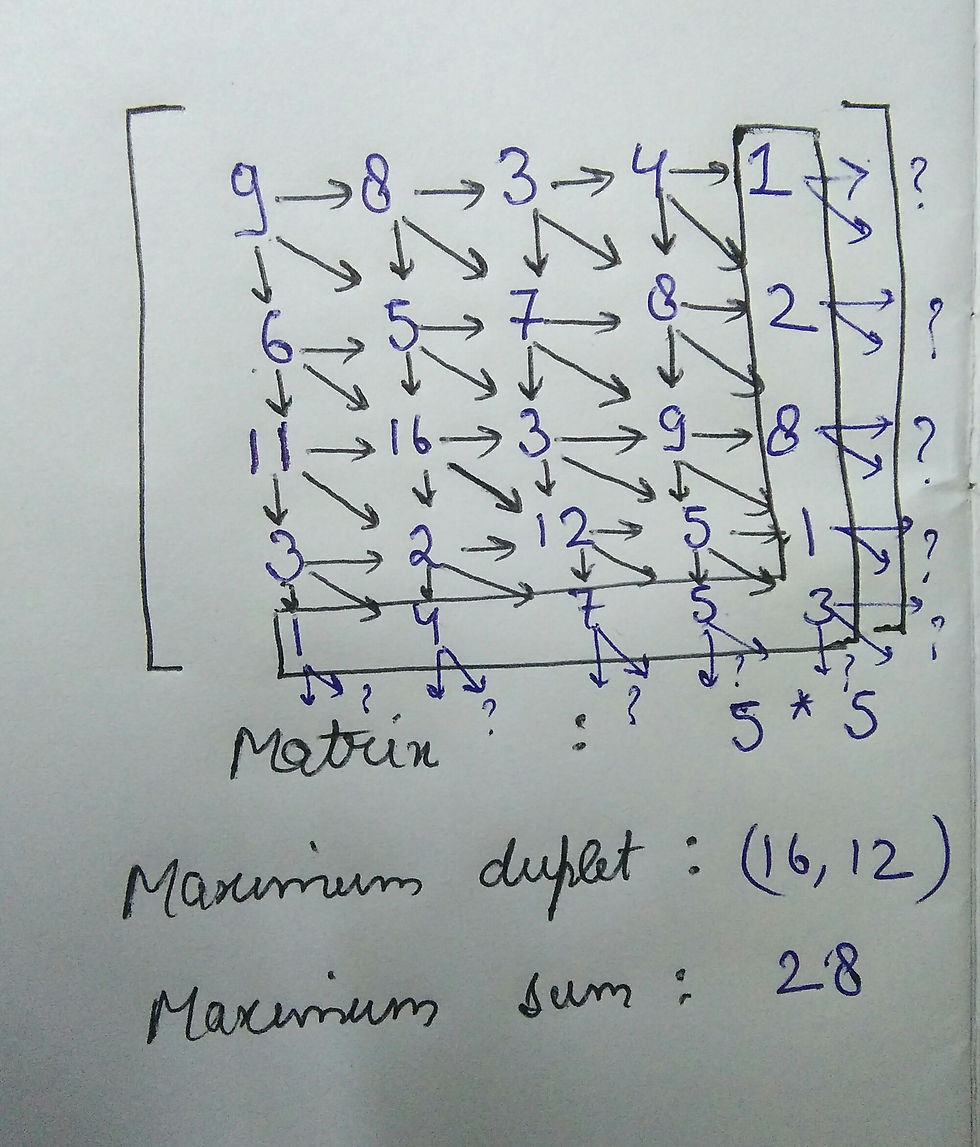 9 → 8 → 3 → 4 → 1 → ?
6 → 5 → 7 → 8 → 2 → ?
11 → 16 → 3 → 9 → 8 → ?
3 → 2 → 12 → 5 → 1 → ?
1 4 7 5 3 → ?
? ? ? ? ?
Matrix : 5 * 5
Maximum duplet : (16, 12)
Maximum sum : 28